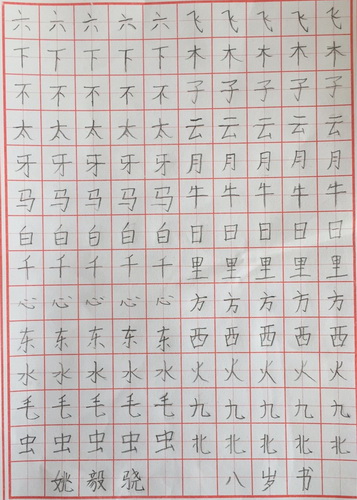 六六六六六飞飞飞飞飞
下下下下下木木木木木
不不不不不子子子子子
太太太太太云云云云云
牙牙牙牙牙月月月月月
马马马马马牛牛牛牛牛
白白白白白日日日日日
千千千千千里里里里里
心心心心心方方方方方
东东东东东西西西西西
水水水水水火火火火火
毛毛毛毛毛九九九九九
虫虫虫虫虫北北北北北
姚毅骁 八岁书